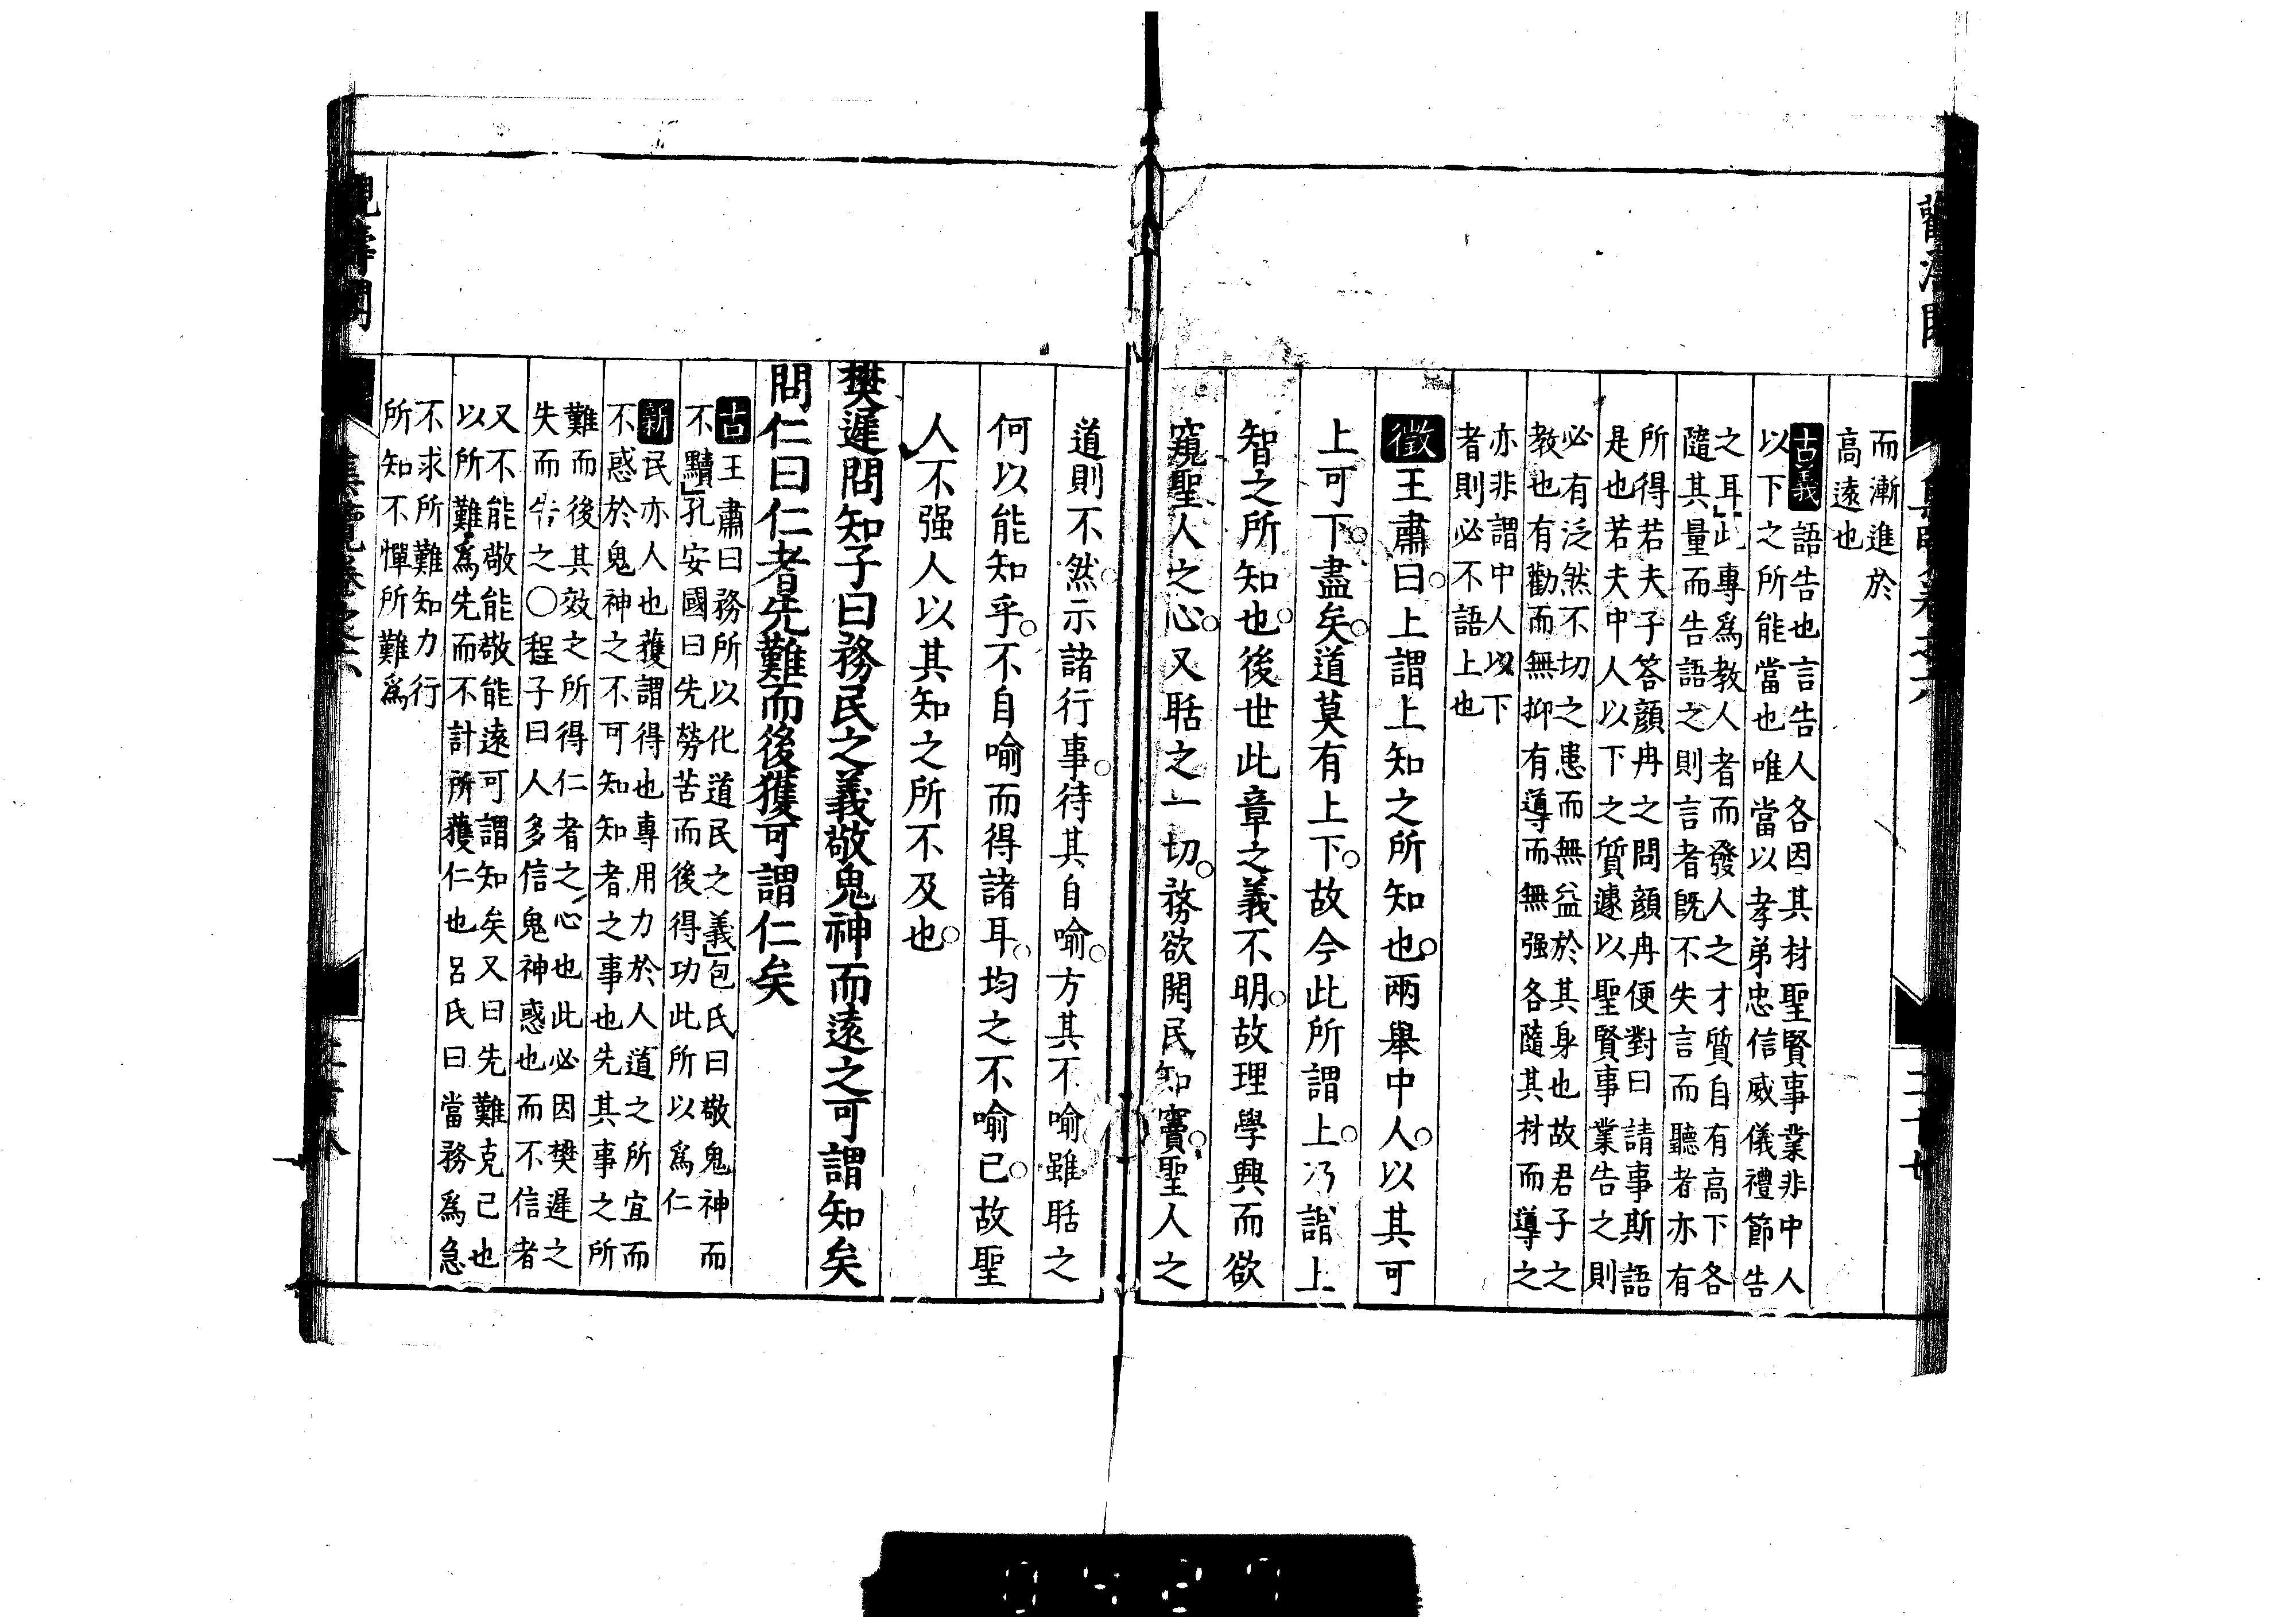 而漸進於
高遠也
古義語告也言告人各因其材聖賢事業非中人
以下之所能當也唯當以孝弟忠信威儀禮節告
之耳此專爲教人者而發人之才質自有高下各
隨其量而告語之則言者既不失言而聽者亦有
所得若夫子答顔冉之問顔冉便對曰請事斯語
是也若夫中人以下之質遽以聖賢事業告之則
必有泛然不切之患而無益於其身也故君子之
教也有勸而無抑有導而無强各隨其材而導之
亦非謂中人以下
者則必不語上也
徵王肅曰上謂上知之所知也兩舉中人以其可
上可下盡矣道莫有上下故今此所謂上乃謂上
智之所知也後世此章之義不明故理學興而欲
窺聖人之心又聒之一切務欲開民知竇聖人之
道則不然示諸行事待其自喻方其不喻雖聒之
何以能知乎不自喻而得諸耳均之不喻已故聖
人不强人以其知之所不及也
樊遲問知子曰務民之義敬鬼神而遠之可謂知矣
問仁曰仁者先難而後獲可謂仁矣
古王肅曰務所以化道民之義包氏曰敬鬼神而
不黷孔安國曰先勞苦而後得功此所以爲仁
新民亦人也獲謂得也專用力於人道之所宜而
不惑於鬼神之不可知知者之事也先其事之所
難而後其效之所得仁者之心也此必因樊遲之
失而告之○程子曰人多信鬼神惑也而不信者
又不能敬能敬能遠可謂知矣又曰先難克己也
以所難爲先而不計所獲仁也呂氏曰當務爲急
不求所難知力行
所知不憚所難爲